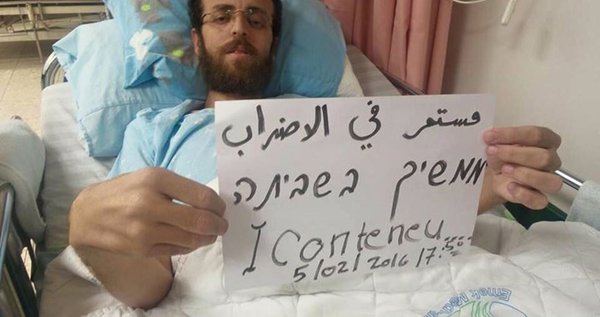 مستمر في الاضراب
ממשיך בשביתה
I Conteneu...
5/02/2016 / 7:
Emek Med